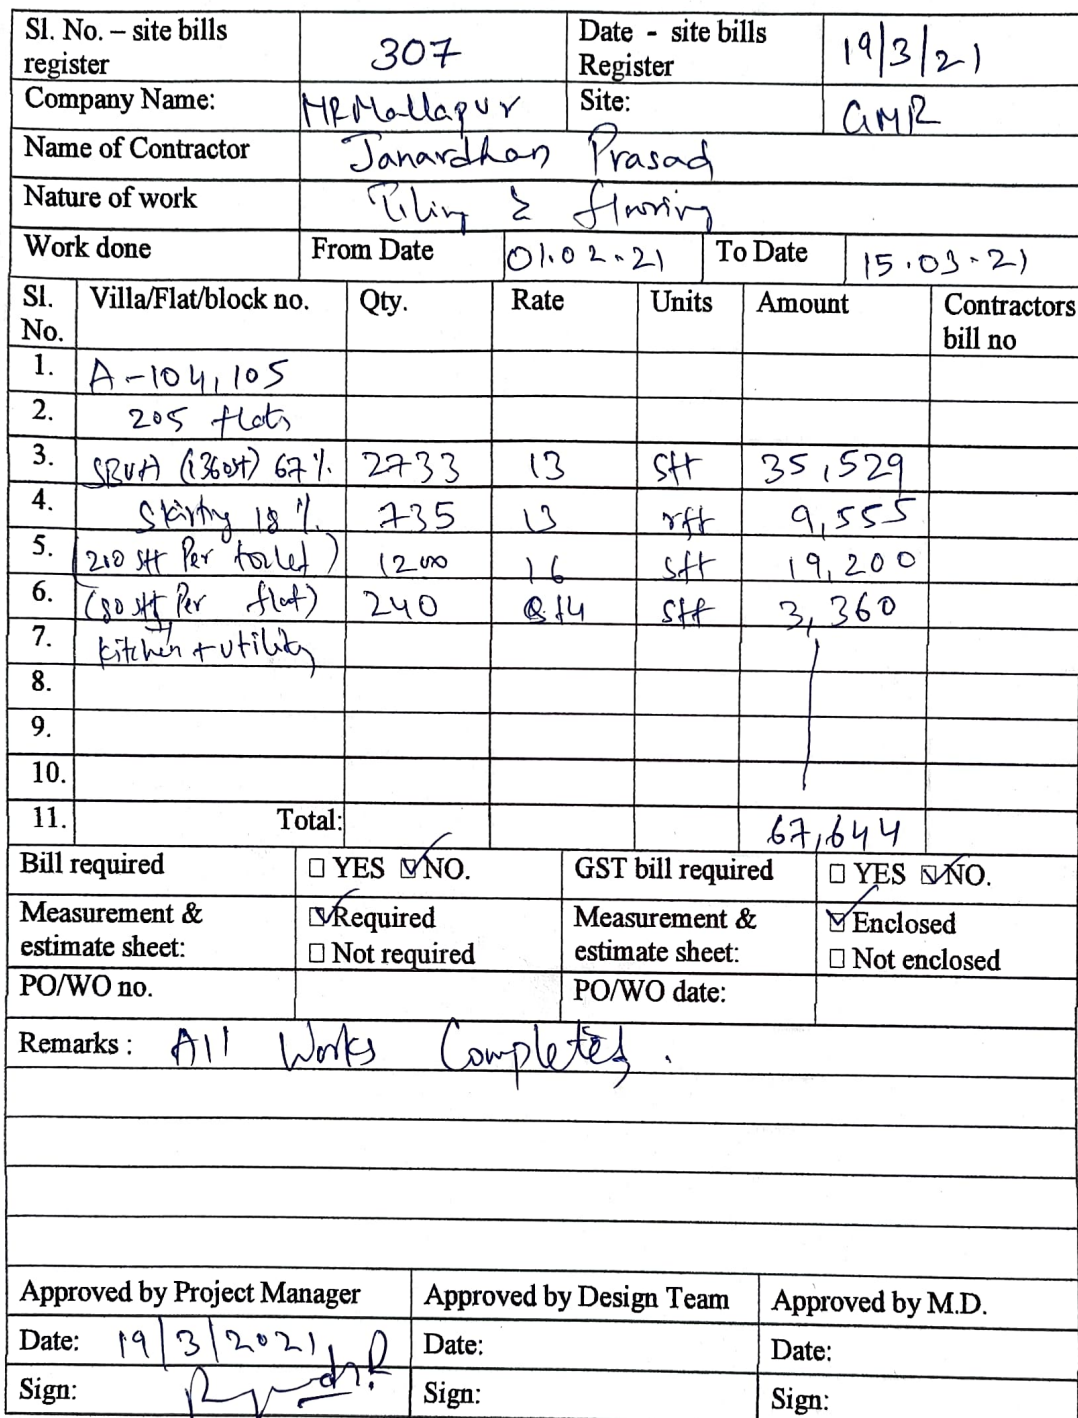 Sl. No. – site bills register 307 Date - site bills Register 19/3/21
Company Name: MR Mallapur Site: GMR
Name of Contractor Janardhan Prasad
Nature of work Tiling & flooring
Work done From Date 01.02.21 To Date 15.03.21
Sl. No. Villa/Flat/block no. Qty. Rate Units Amount Contractors bill no
1. A-104,105
2. 205 flats
3. SBUA (1360sft) 67%. 2733 13 sft 35,529
4. Skirting 18%. 735 13 rft 9,555
5. (200 sft Per toilet) 1200 16 sft 19,200
6. (80 sft Per flat) 240 14 sft 3,360
7. kitchen + utility
8.
9.
10.
11. Total: 67,644
Bill required □ YES ☑ NO. GST bill required □ YES ☑ NO.
Measurement & estimate sheet: ☑ Required □ Not required Measurement & estimate sheet: ☑ Enclosed □ Not enclosed
PO/WO no. PO/WO date:
Remarks : All Works Completed.
Approved by Project Manager Approved by Design Team Approved by M.D.
Date: 19/3/2021 Date: Date:
Sign: Sign: Sign: